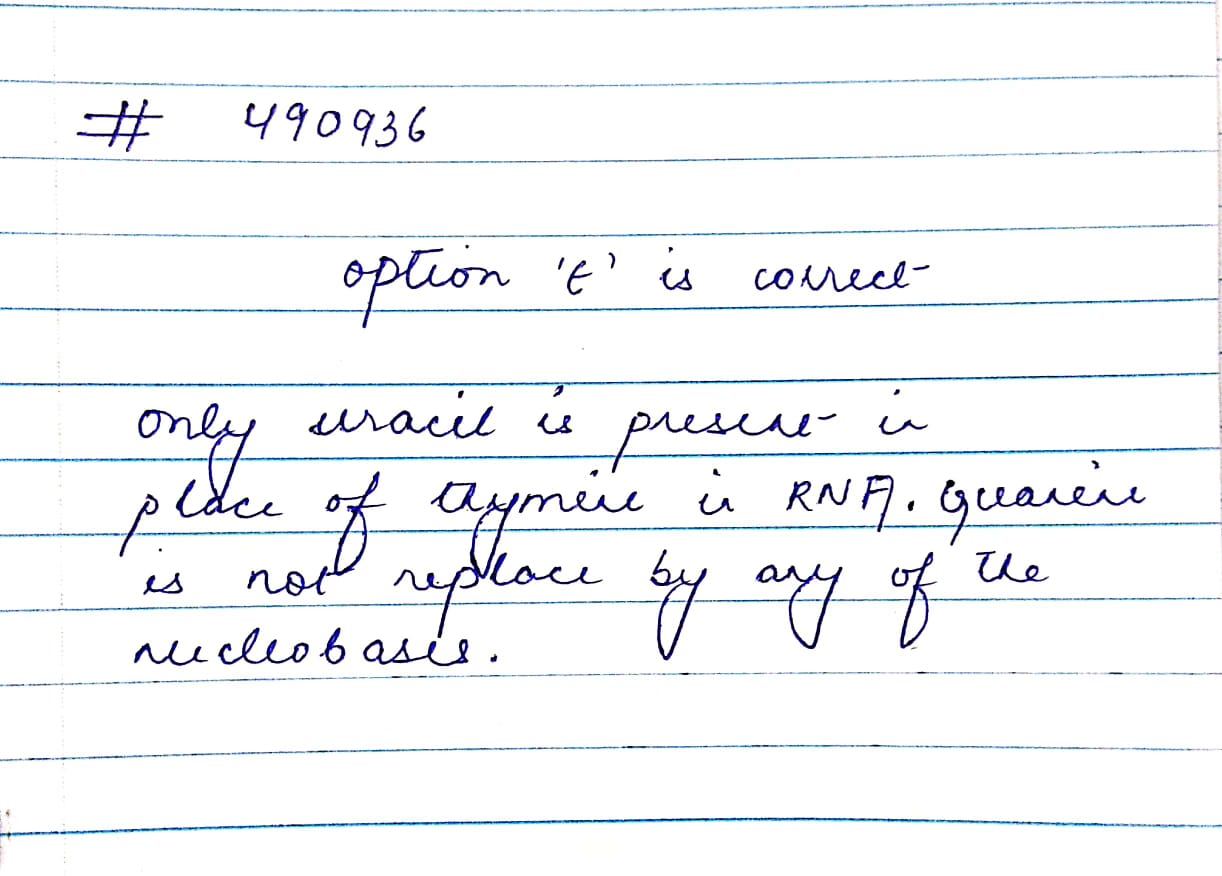 # 490936
option 'E' is correct
only uracil is present in
place of thymine in RNA. Guanine
is not replace by any of the
nucleobases.